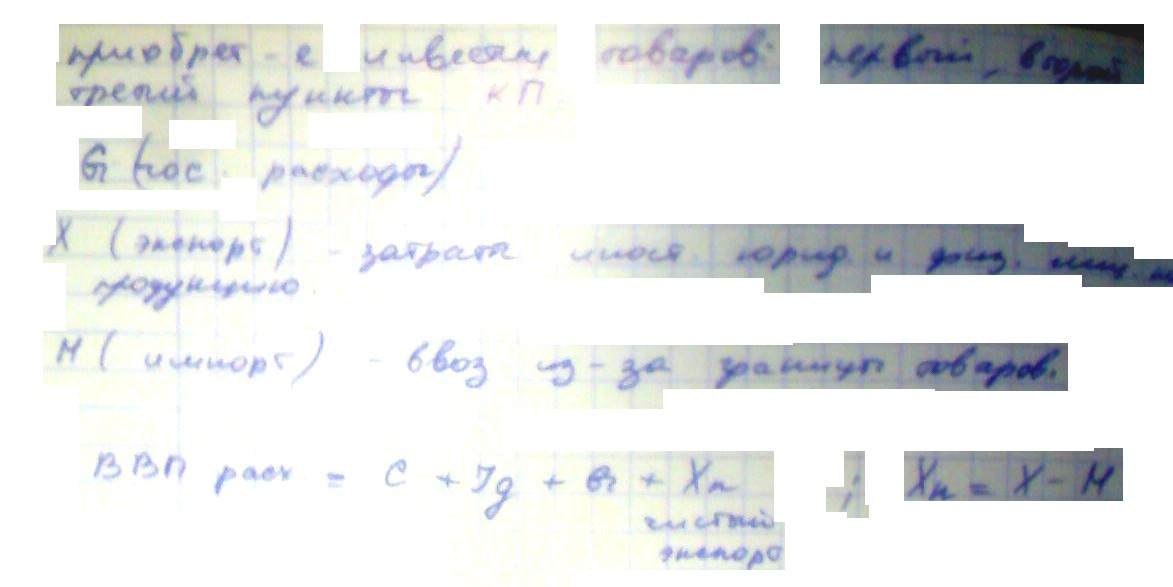 приобрет-е инвестиц товаров: первый, второй
третий пункты КП.
G (гос. расходы)
X (экспорт) - затраты иност. юрид. и физ. лиц на
продукцию.
M (импорт) - ввоз из-за границы товаров.
ВВП расх = C + Ig + G + Xn ; Xn = X - M
чистый
экспорт